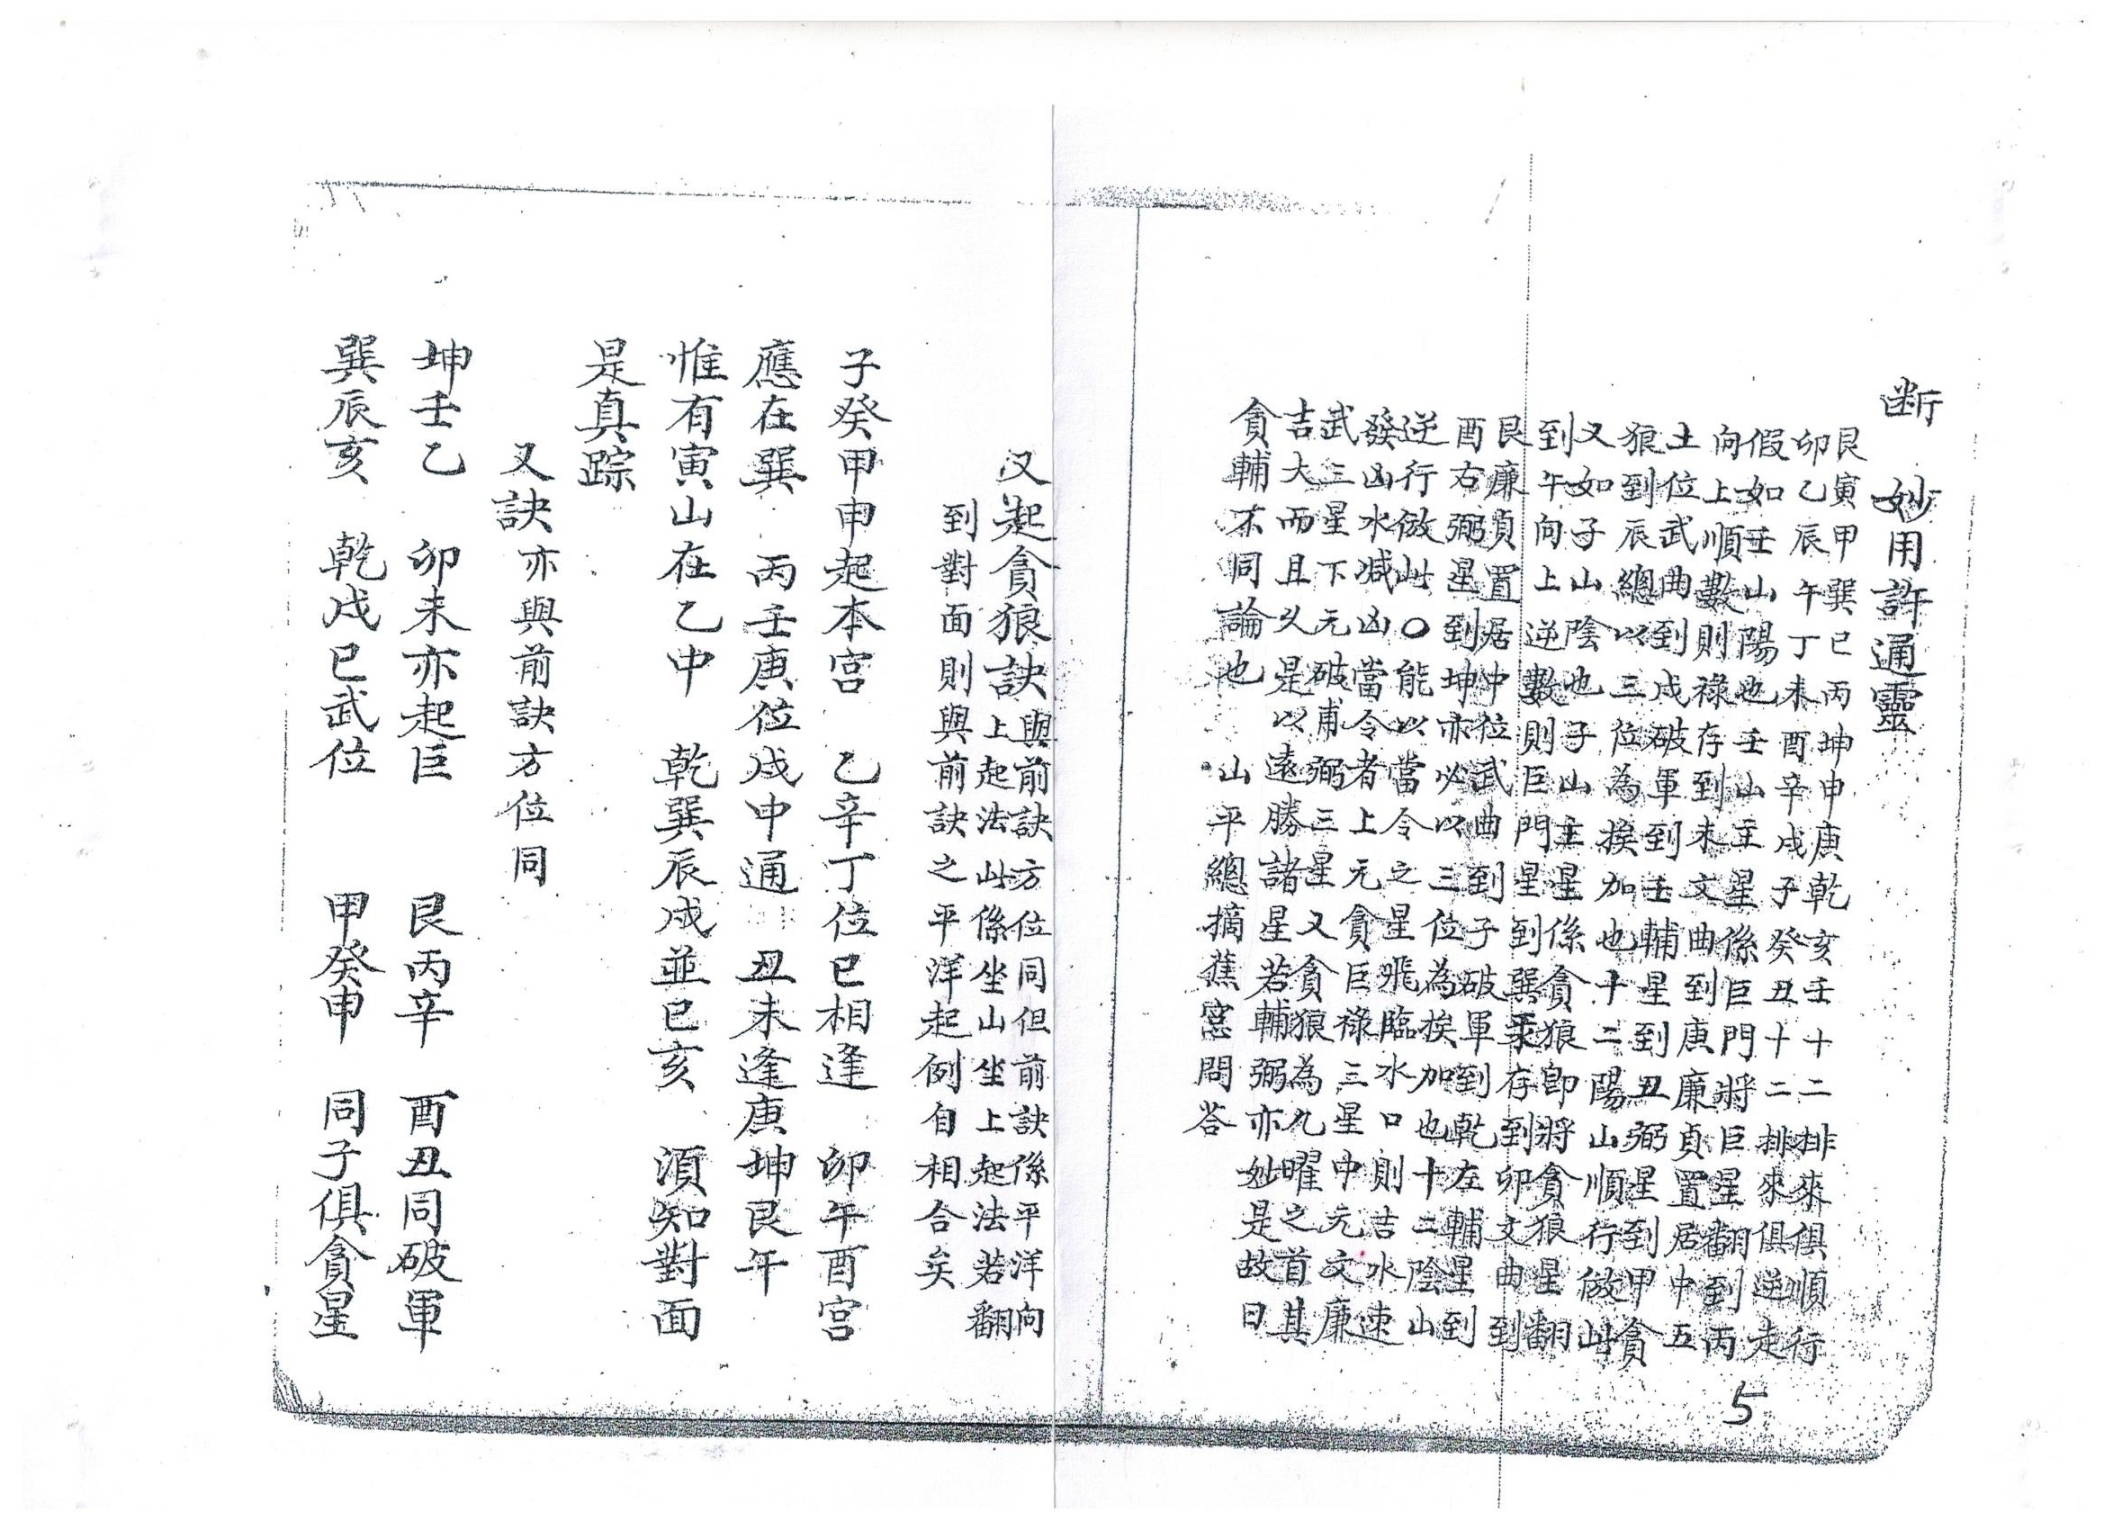 断　妙用許通靈
艮寅甲巽巳丙坤申庚乾亥壬十二排來俱順行
卯乙辰午丁未酉辛戌子癸丑十二排來俱逆走
假如壬山陽也壬山主星係巨門將巨星翻到丙
向上順數則祿存到未文曲到庚廉貞置居中五
土位武曲到戌破軍到壬輔星到丑弼星到甲貪
狼到辰總以三位為挨加也十二陽山順行倣此
又如子山陰也子山主星係貪狼即將貪狼星翻
到午向上逆數則巨門星到巽祿存到卯文曲到
艮廉貞置居中位武曲到子破軍到乾左輔星到
酉右弼星到坤亦必以三位為挨加也十二陰山
逆行倣此〇能以當令之星飛臨水口則吉水速
發凶水減凶當令者上元貪巨祿三星中元文廉
武三星下元破甫弼三星又貪狼為九曜之首其
吉大而且久是以遠勝諸星若輔弼亦妙是故曰
貪輔不同論也　山平總摘蕉窓問答
又起貪狼訣與前訣方位同但前訣係平洋向
上起法此係坐山坐上起法若翻
到對面則與前訣之平洋起例自相合矣
子癸甲申起本宮　乙辛丁位巳相逢　卯午酉宮
應在巽　丙壬庚位戌中通　丑未逢庚坤艮午
惟有寅山在乙中　乾巽辰戌並巳亥　須知對面
是真踪
又訣亦與前訣方位同
坤壬乙　卯未亦起巨　艮丙辛　酉丑同破軍
巽辰亥　乾戌巳武位　甲癸申　同子俱貪星
5